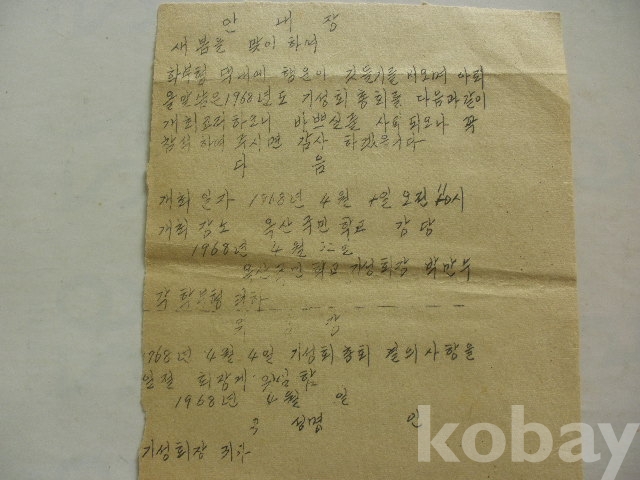 안 내 장
새 봄을 맞이 하여
학부형 댁내에 행운이 깃들기를 비오며 아뢰
올말씀은 1968년도 기성회 총회를 다음과같이
개최코저하오니 바쁘실줄 사뢰되오나 꼭
참석 하여 주시면 감사 하겠습니다
다 음
개최 일자 1968년 4월 4일 오전 10시
개최 장소 옥산 국민 학교 강당
1968년 4월 일
옥산국민 학교 기성회장 박만부
각 학부형 귀하
위 임 장
1968년 4월 4일 기성회 총회 결의 사항을
일절 회장게 위임 함
1968년 4월 일
성명 인
기성회장 귀하
kobay